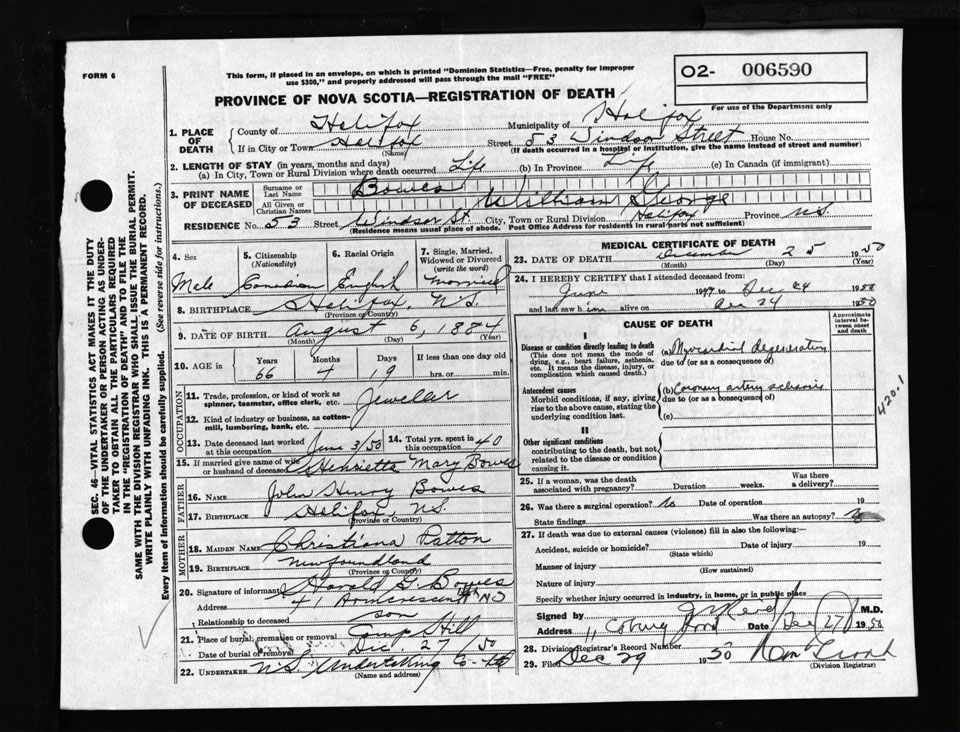 FORM 6
This form, if placed in an envelope, on which is printed "Dominion Statistics—Free, penalty for improper
use $300," and properly addressed will pass through the mail "FREE"
O2- 006590
For use of the Department only
PROVINCE OF NOVA SCOTIA—REGISTRATION OF DEATH
1. PLACE OF DEATH
County of Halifax Municipality of Halifax
If in City or Town Halifax (Name) Street 53 Windsor Street House No.
(If death occurred in a hospital or institution, give the name instead of street and number)
2. LENGTH OF STAY (in years, months and days)
(a) In City, Town or Rural Division where death occurred Life (b) In Province Life (c) In Canada (if immigrant)
3. PRINT NAME OF DECEASED
Surname or Last Name Bowes
All Given or Christian Names William George
RESIDENCE No. 53 Street Windsor St. City, Town or Rural Division Halifax Province N.S.
(Residence means usual place of abode. Post Office Address for residents in rural parts not sufficient)
4. Sex Male
5. Citizenship (Nationality) Canadian
6. Racial Origin English
7. Single, Married, Widowed or Divorced (write the word) Married
8. BIRTHPLACE Halifax, N.S.
(Province or Country)
9. DATE OF BIRTH August 6, 1884
(Month) (Day) (Year)
10. AGE in Years 66 Months 4 Days 9 If less than one day old hrs. or min.
OCCUPATION
11. Trade, profession, or kind of work as spinner, teamster, office clerk, etc. Jeweller
12. Kind of industry or business, as cotton-mill, lumbering, bank, etc.
13. Date deceased last worked at this occupation June 3/50 14. Total yrs. spent in this occupation 40
15. If married give name of wife or husband of deceased Henrietta Mary Bowes
FATHER
16. NAME John Henry Bowes
17. BIRTHPLACE Halifax, N.S.
(Province or Country)
MOTHER
18. MAIDEN NAME Christiana Patton
19. BIRTHPLACE Newfoundland
(Province or Country)
20. Signature of informant Harold G. Bowes
Address 41 Armcrescent
Relationship to deceased son
21. Place of burial, cremation or removal Camp Hill
Date of burial or removal Dec 27 50
22. UNDERTAKER N.S. Undertaking Co.
(Name and address)
MEDICAL CERTIFICATE OF DEATH
23. DATE OF DEATH December 25 1950
(Month) (Day) (Year)
24. I HEREBY CERTIFY that I attended deceased from:
June 1949 to Dec 24 1950
and last saw him alive on Dec 24 1950
CAUSE OF DEATH
Approximate interval between onset and death
I
Disease or condition directly leading to death
(This does not mean the mode of dying, e.g., heart failure, asthenia, etc. It means the disease, injury, or complication which caused death.)
(a) Myocardial degeneration
due to (or as a consequence of)
Antecedent causes
Morbid conditions, if any, giving rise to the above cause, stating the underlying condition last.
(b) Coronary artery sclerosis
due to (or as a consequence of)
(c)
420.1
II
Other significant conditions
contributing to the death, but not related to the disease or condition causing it.
25. If a woman, was the death associated with pregnancy? Duration weeks. Was there a delivery?
26. Was there a surgical operation? No Date of operation 19
State findings Was there an autopsy? No
27. If death was due to external causes (violence) fill in also the following:—
Accident, suicide or homicide? Date of injury 19
(State which)
Manner of injury
(How sustained)
Nature of injury
Specify whether injury occurred in industry, in home, or in public place
Signed by J. W. Reid M.D.
Address 11 Coburg Road Date Dec 27 1950
28. Division Registrar's Record Number
29. Filed Dec 29 1950
(Division Registrar)
SEC. 46—VITAL STATISTICS ACT MAKES IT THE DUTY
OF THE UNDERTAKER OR PERSON ACTING AS UNDER-
TAKER TO OBTAIN ALL THE PARTICULARS REQUIRED
IN THE "REGISTRATION OF DEATH" AND TO FILE THE
SAME WITH THE DIVISION REGISTRAR WHO SHALL ISSUE THE BURIAL PERMIT.
WRITE PLAINLY WITH UNFADING INK. THIS IS A PERMANENT RECORD.
Every item of information should be carefully supplied. (See reverse side for instructions.)